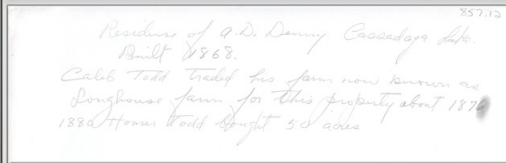 857.12
Residence of A.D. Denny Cassadaga Lake.
Built 1868.
Caleb Todd traded his farm now known as
Longhouse farm for this property about 1876
1880 Homer Todd bought 50 acres